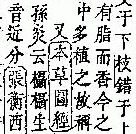 于下枝錯于
有脂而香今之
中多植之故稱
又本草圖經
孫炎云欇欇生
音近分張衡西